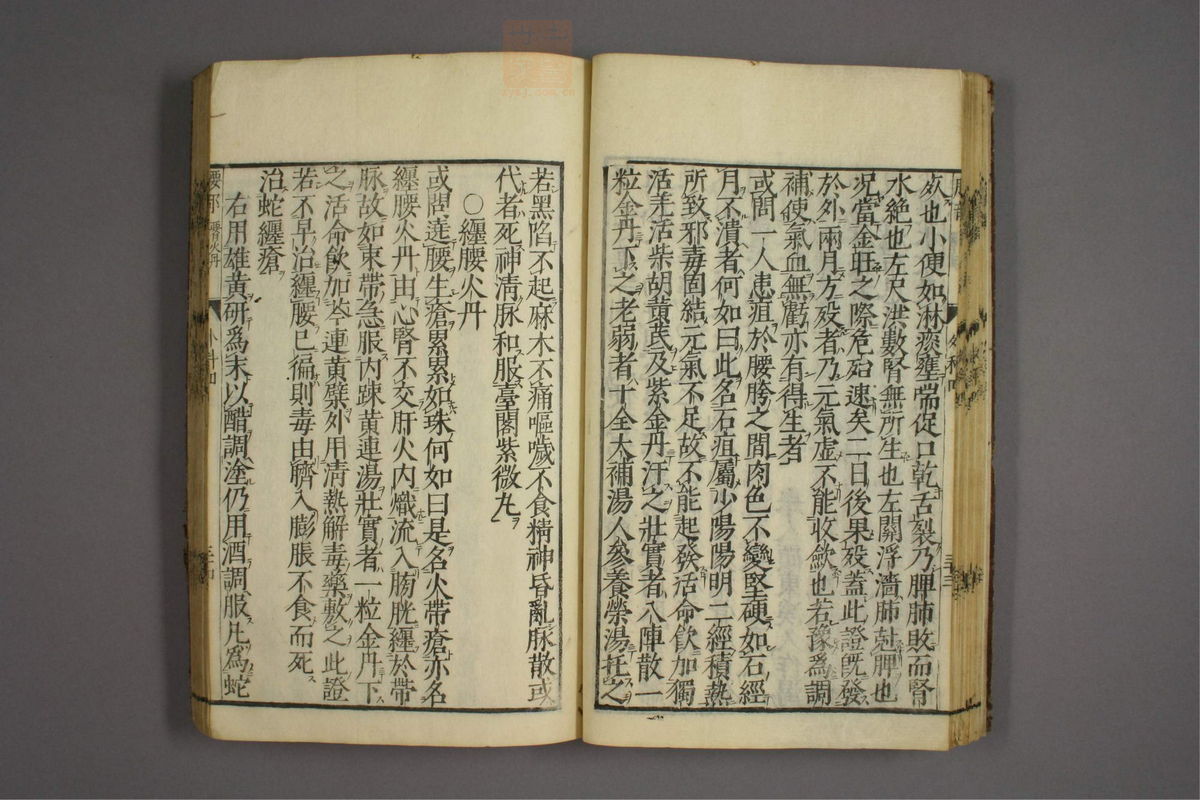 㱃也小便如淋痰壅喘促口乾舌裂乃脾肺敗而腎
水絶也左尺洪數腎無所生也左關浮濇肺尅脾也
况當金旺之際危殆速矣二日後果殁蓋此證既發
於外兩月方殁者乃元氣虚不能收歛也若豫爲調
補使氣血無虧亦有得生者
或問一人患疽於腰胯之間肉色不變堅硬如石經
月不潰者何如曰此名石疽屬少陽陽明二經積熱
所致邪毒固結元氣不足故不能起發活命飲加獨
活羌活柴胡黄芪及紫金丹汗之壯實者八陣散一
粒金丹下之老弱者十全大補湯人參養榮湯托之
若黑陷不起麻木不痛嘔噦不食精神昏亂脉散或
代者死神清脉和服臺閣紫微丸
○纏腰火丹
或問遶腰生瘡累累如珠何如曰是名火帶瘡亦名
纏腰火丹由心腎不交肝火内熾流入膀胱纏於帶
脉故如束帶急服内踈黄連湯壯實者一粒金丹下
之活命飲加芩連黄蘗外用清熱解毒藥敷之此證
若不早治纏腰已徧則毒由臍入膨脹不食而死
治蛇纏瘡
右用雄黄研爲末以醋調塗仍用酒調服凡爲蛇